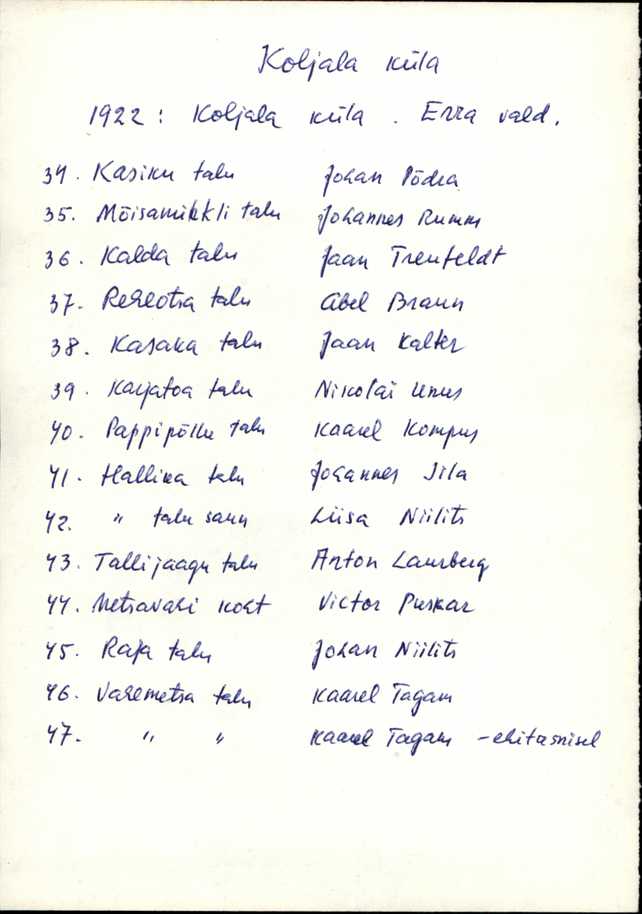 Koljala küla
1922: Koljala küla. Erra vald.
34. Kasiku talu Johan Põdra
35. Mõisamihkli talu Johannes Rumm
36. Kalda talu Jaan Treufeldt
37. Reheotsa talu Abel Braun
38. Kasaka talu Jaan Kalter
39. Karjatoa talu Nikolai Unus
40. Pappipõllu talu Kaarel Kompus
41. Hallika talu Johannes Sila
42. " talu saun Liisa Niilits
43. Tallijaagu talu Anton Laurberg
44. Metsavahi koht Victor Puskar
45. Raja talu Johan Niilits
46. Varemetsa talu Kaarel Tagam
47. " " Kaarel Tagam - ehitusmisel